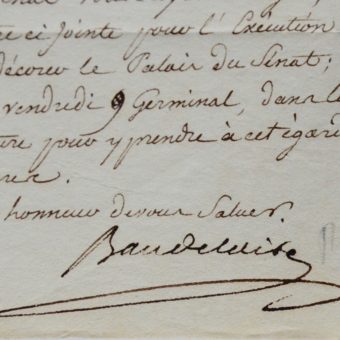 re ci jointe pour l'Exécution
décorer le Palais du Sénat;
vendredi 9 Germinal, dans la
ure pour y prendre à cet égard
honneur de vous Saluer.
Baudelaire